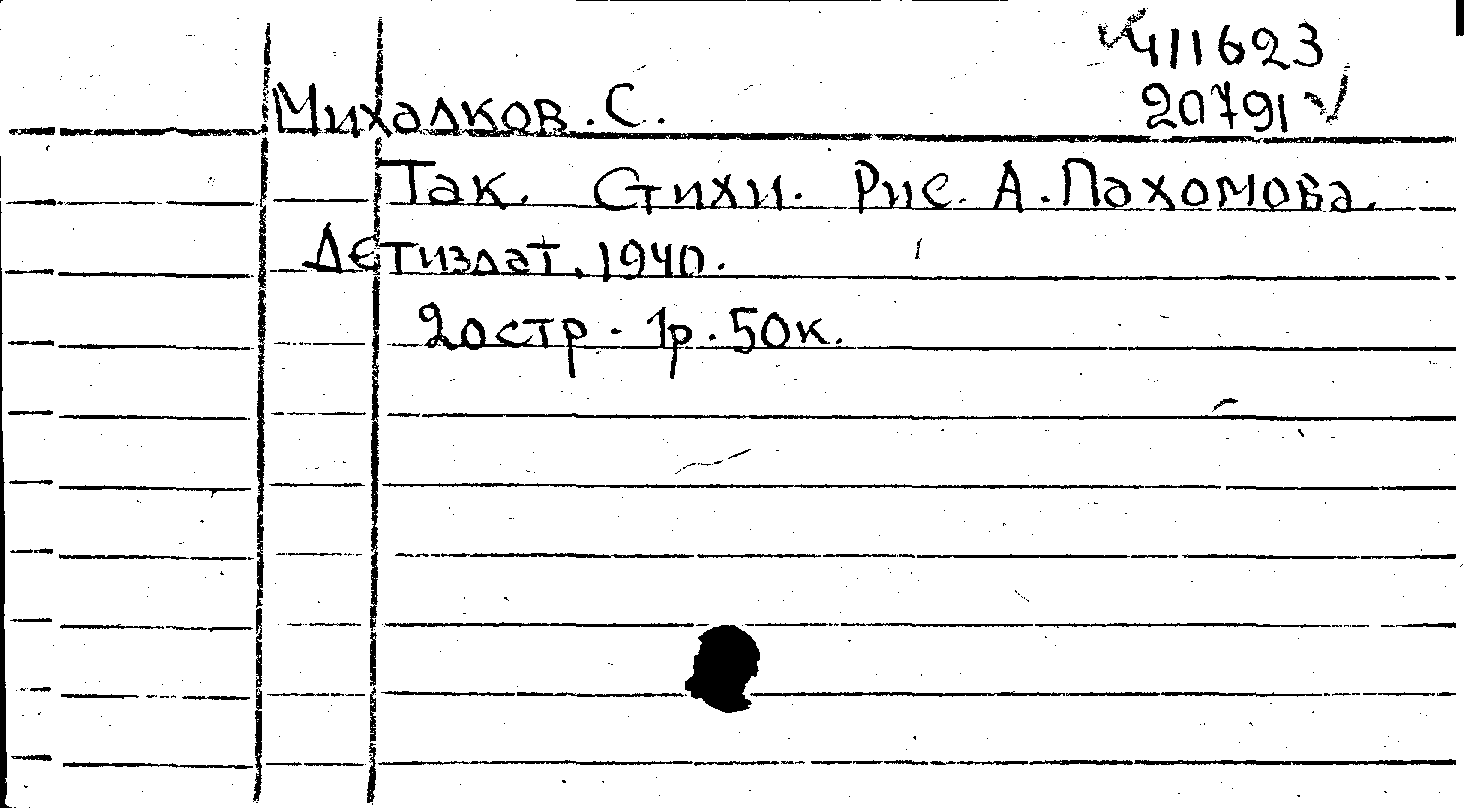 411623
20791
Михалков. С.
Так. Стихи. Рис. А. Пахомова.
Детиздат. 1940.
20стр. 1р. 50к.